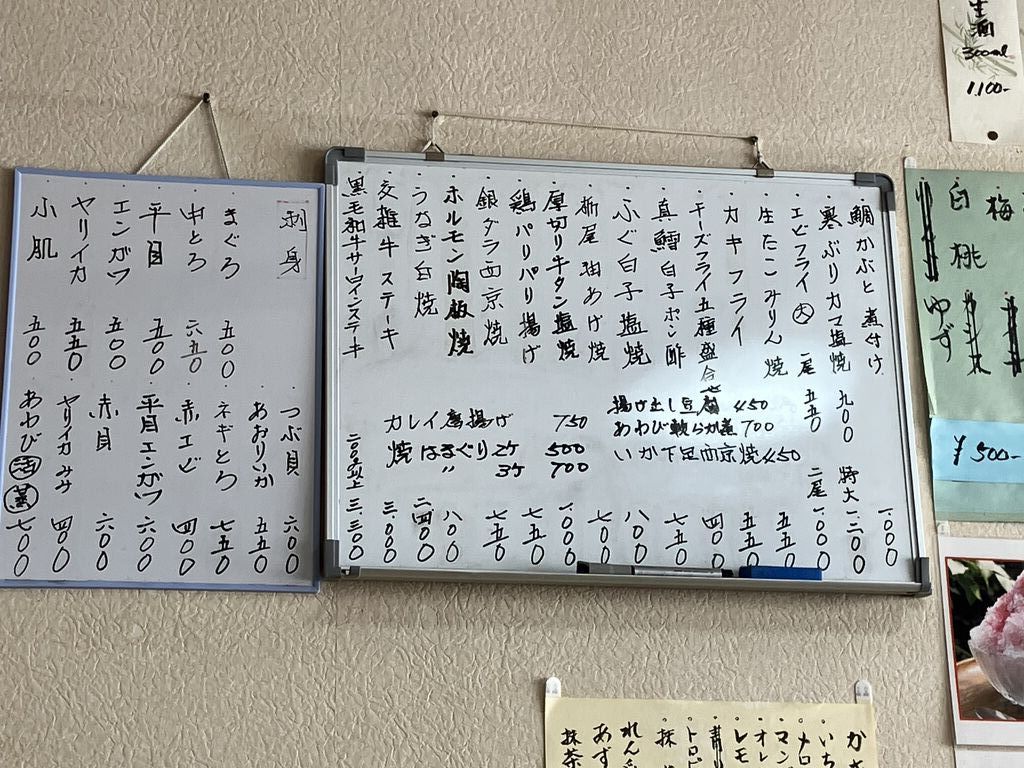 生酒
300ml
1,100-
梅
白桃
ゆず
¥500-
鯛かぶと煮付け 一.000
寒ぶりカマ塩焼 九00 特大 一.二00
エビフライ 大 一尾 五五0 二尾 一.000
生たこみりん焼 五五0
カキフライ 五五0
チーズフライ五種盛合せ 四00
真鱈白子ポン酢 七五0
ふぐ白子塩焼 八00
栃尾油あげ焼 七00
厚切り牛タン塩焼 一.000
鶏パリパリ揚げ 七五0
銀ダラ西京焼 七五0
ホルモン陶板焼 八00
うなぎ白焼 二.四00
交雑牛ステーキ 三.000
黒毛和牛サーロインステーキ 二00g以上 三.三00
揚げ出し豆腐 450
あわび軟らか煮 700
いか下足西京焼 450
カレイ唐揚げ 750
焼はまぐり 2ケ 500
〃 3ケ 700
刺身
まぐろ 五00
中とろ 六五0
平目 五00
エンガワ 五00
ヤリイカ 五五0
小肌 五00
つぶ貝 六00
あおりいか 五五0
ネギとろ 七五0
赤エビ 四00
平目エンガワ 六00
赤貝 六00
ヤリイカみみ 四00
あわび 活 蒸 七00
いち
メロ
マン
オレ
レモ
トロピ
抹
れん
あず
抹茶